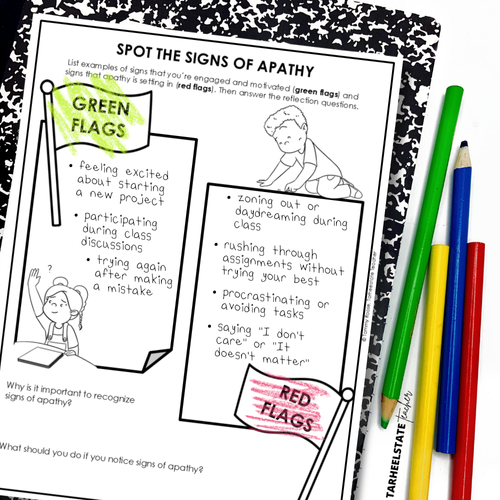 SPOT THE SIGNS OF APATHY
List examples of signs that you're engaged and motivated (green flags) and
signs that apathy is setting in (red flags). Then answer the reflection questions.
GREEN
FLAGS
• feeling excited
about starting
a new project
• participating
during class
discussions
• trying again
after making
a mistake
?
• zoning out or
daydreaming during
class
• rushing through
assignments without
trying your best
• procrastinating or
avoiding tasks
• saying "I don't
care" or "It
doesn't matter"
RED
FLAGS
Why is it important to recognize
signs of apathy?
What should you do if you notice signs of apathy?
TARHEELSTATE teacher